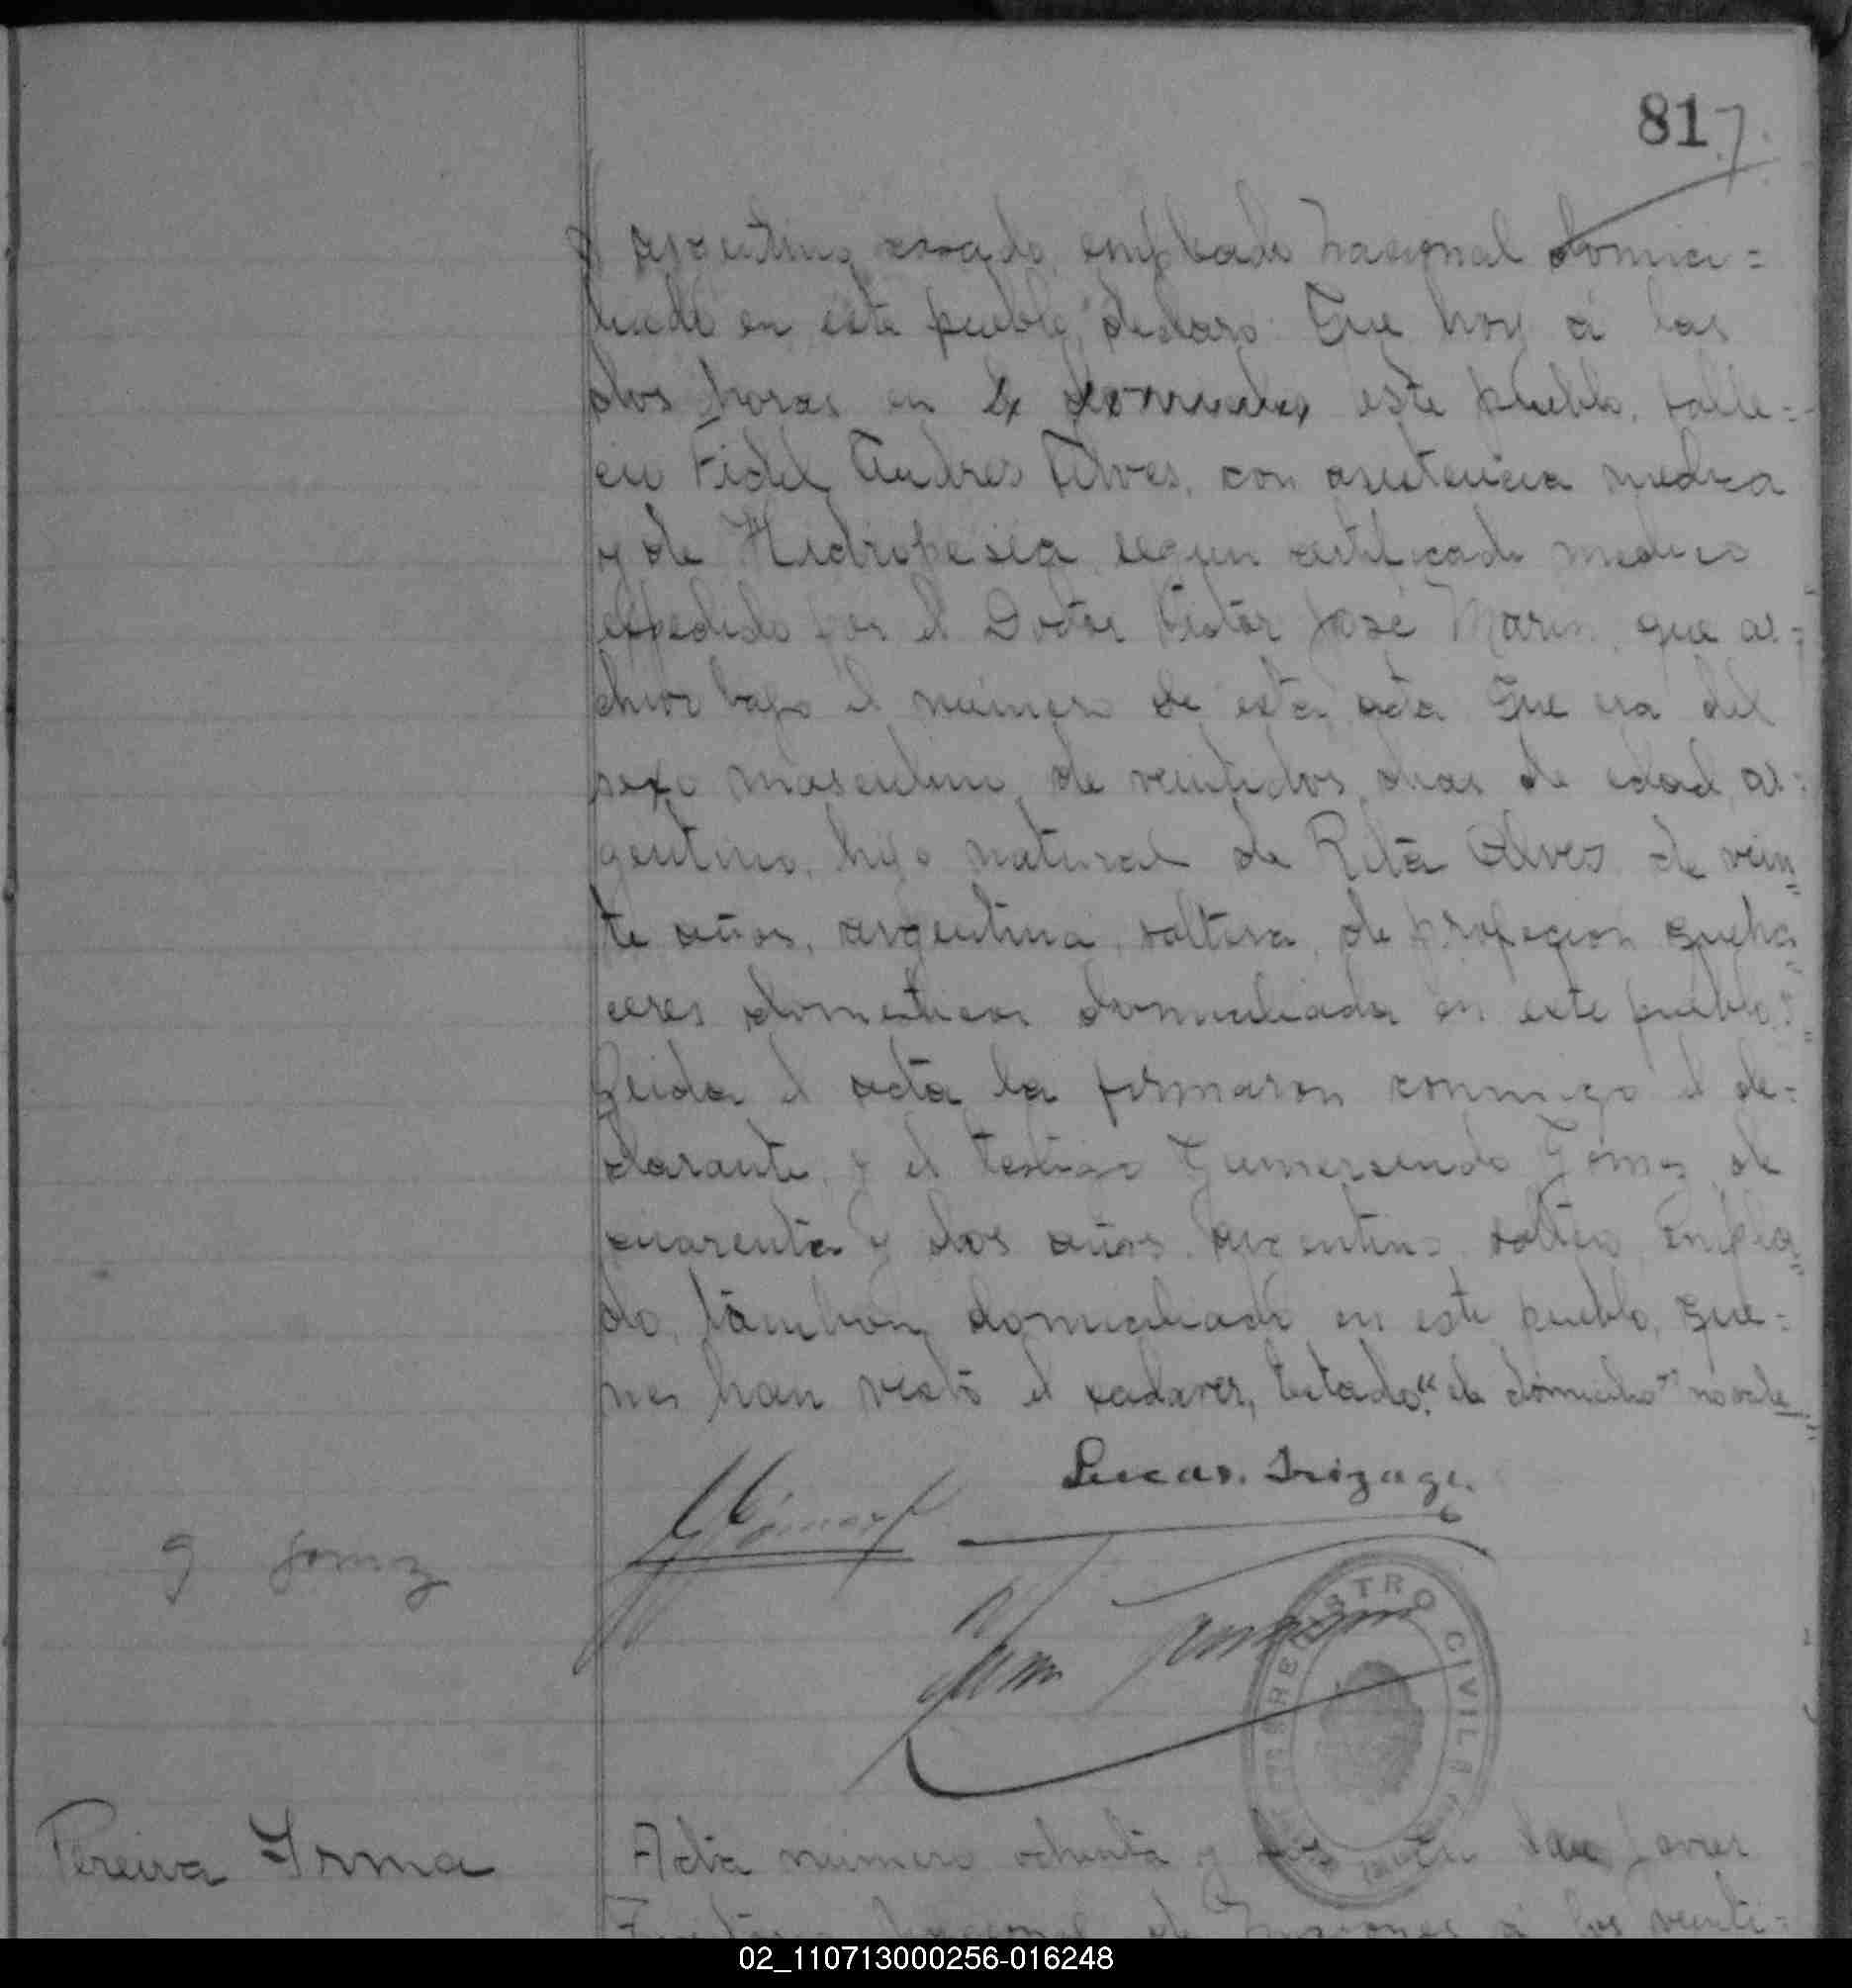 817.
argentino casado, empleado Nacional domici=
liado en este pueblo, declaro: Que hoy á las
dos horas en de domicilio este pueblo, falle=
cio Fidel Andres Alves, con asistencia medica
y de Hidropesia segun certificado medico
expedido por el Doctor Victor José Marin, que ar=
chivo bajo el número de esta acta Que era del
sexo masculino, de veintidos dias de edad, ar=
gentino, hijo natural de Rita Alves de vein=
te años, argentina, soltera, de profecion queha=
ceres domesticos domiciliada en este pueblo.
Leida el acta la firmaron conmigo el de=
clarante, y el testigo Gumersindo Gómez, de
cuarenta y dos años argentino, soltero, emplea=
do, tambien domiciliado en este pueblo, quie=
nes han visto el cadaver, testado "de domicilio" no vale
Lucas. Irizaga.
G Gómez
g gomz
REGISTRO CIVIL
Pereira Irma
Acta número ochenta y en San Javier
Nacional de Misiones á los veinti=
02_110713000256-016248